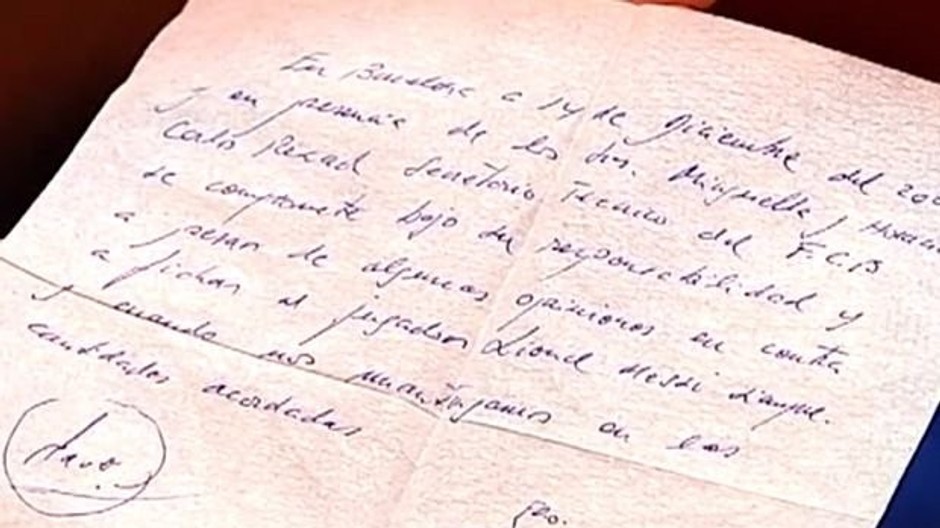 En Barcelona a 14 de Diciembre del 200
y en presencia de los Srs. Minguella y Horacio
Carlos Rexach Secretario Tecnico del F.C.B
se compromete bajo su responsabilidad y
a pesar de algunas opiniones en contra
a fichar al jugador Lionel Messi
y cuando nos mantengamos en las
cantidades acordadas
Fdo.